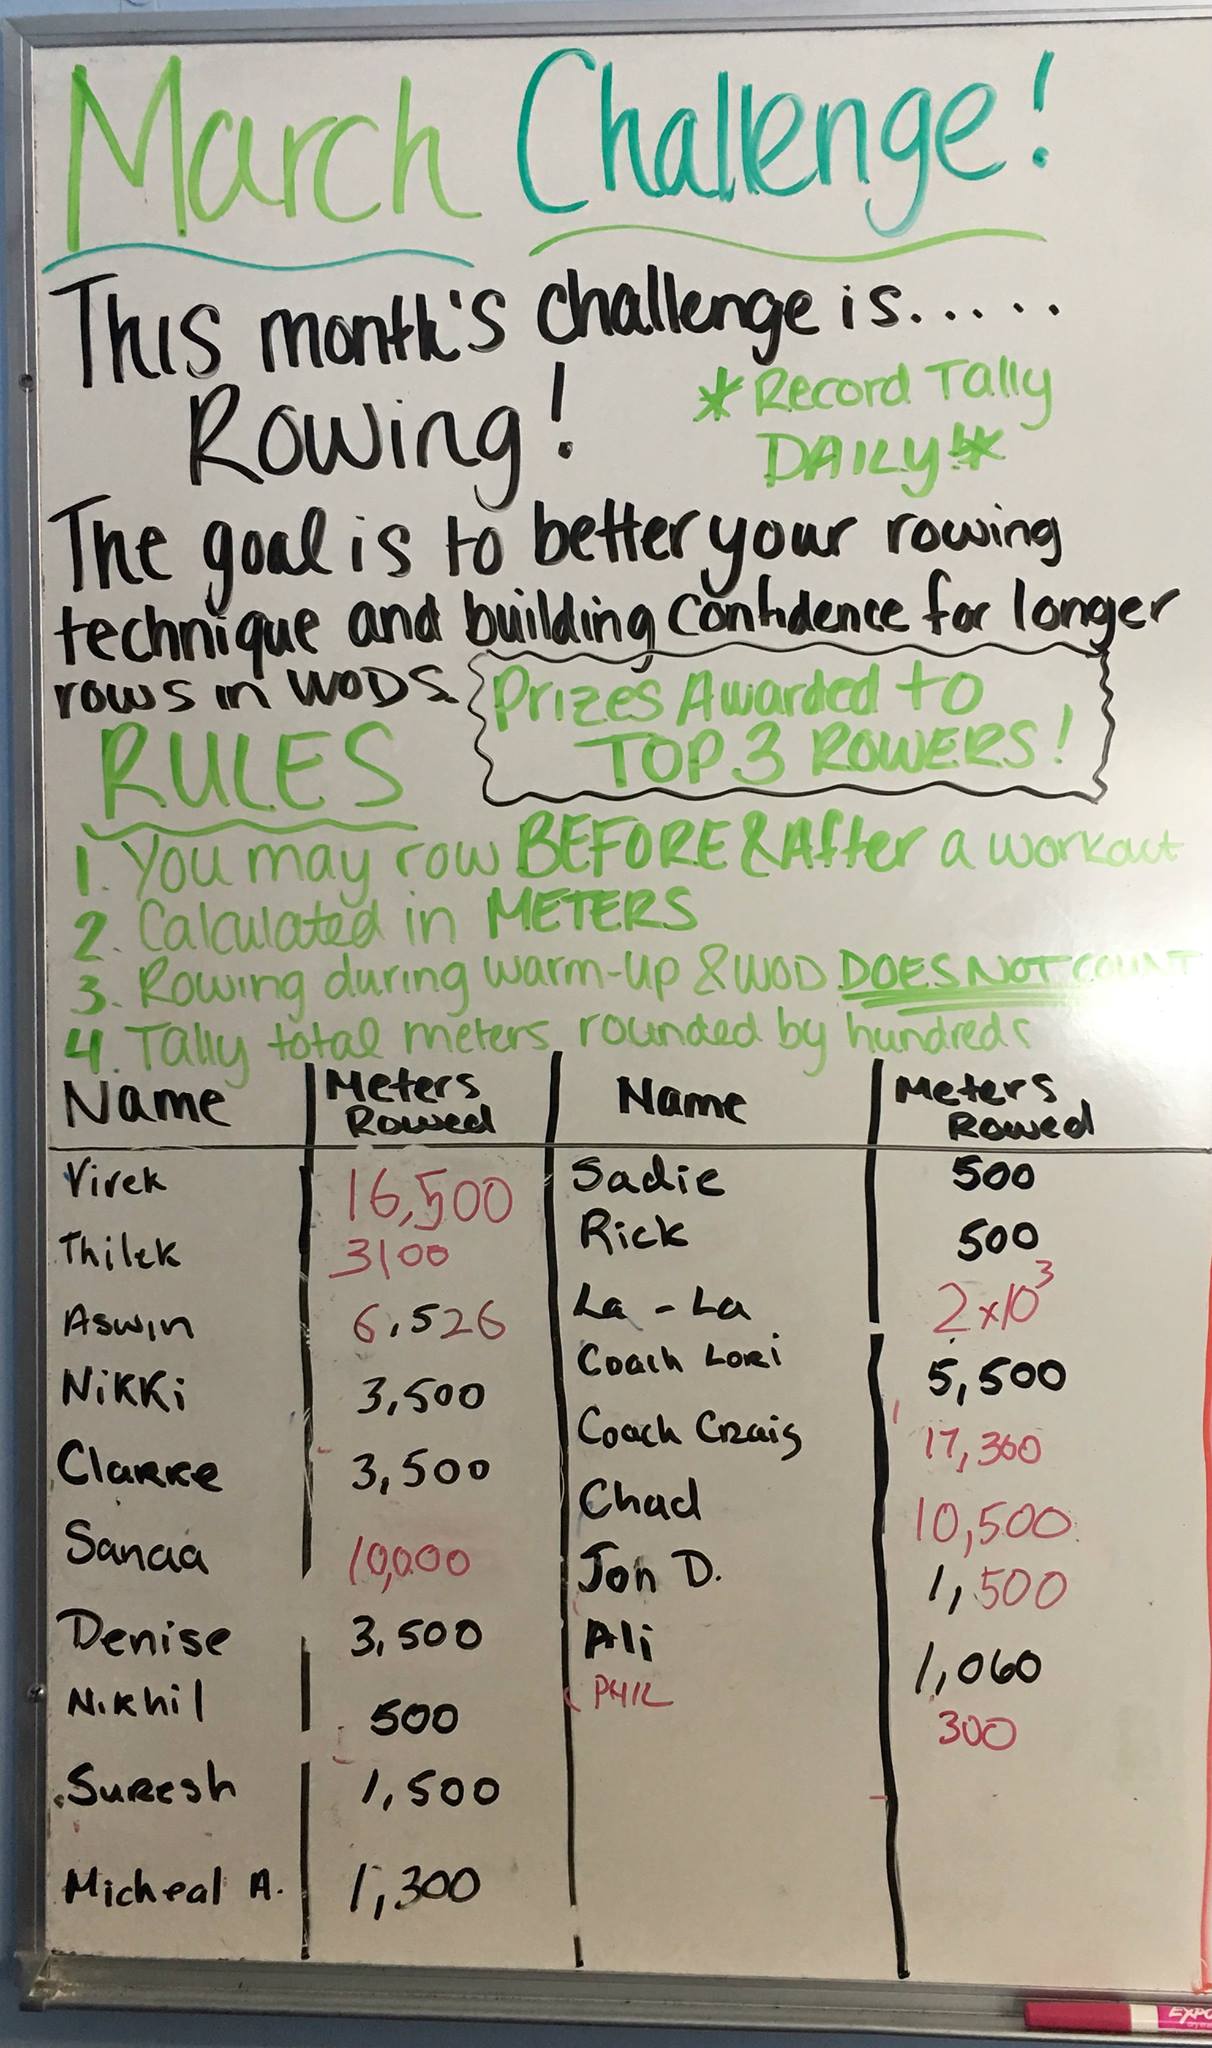 March Challenge!
This month's challenge is.....
Rowing!
*Record Tally
DAILY!*
The goal is to better your rowing
technique and building confidence for longer
rows in WODS.
Prizes Awarded to
TOP 3 ROWERS!
RULES
1. You may row BEFORE & After a workout
2. Calculated in METERS
3. Rowing during warm-up & WOD DOES NOT COUNT
4. Tally total meters rounded by hundreds
Name Meters Rowed Name Meters Rowed
Virek 16,500 Sadie 500
Thilek 3100 Rick 500
Aswin 6,526 La-La 2x10³
Nikki 3,500 Coach Lori 5,500
Clarke 3,500 Coach Craig 17,300
Sanaa 10,000 Chad 10,500
Denise 3,500 Jon D. 1,500
Nikhil 500 Ali 1,060
Suresh 1,500 PHIL 300
Micheal A. 1,300
EXPO